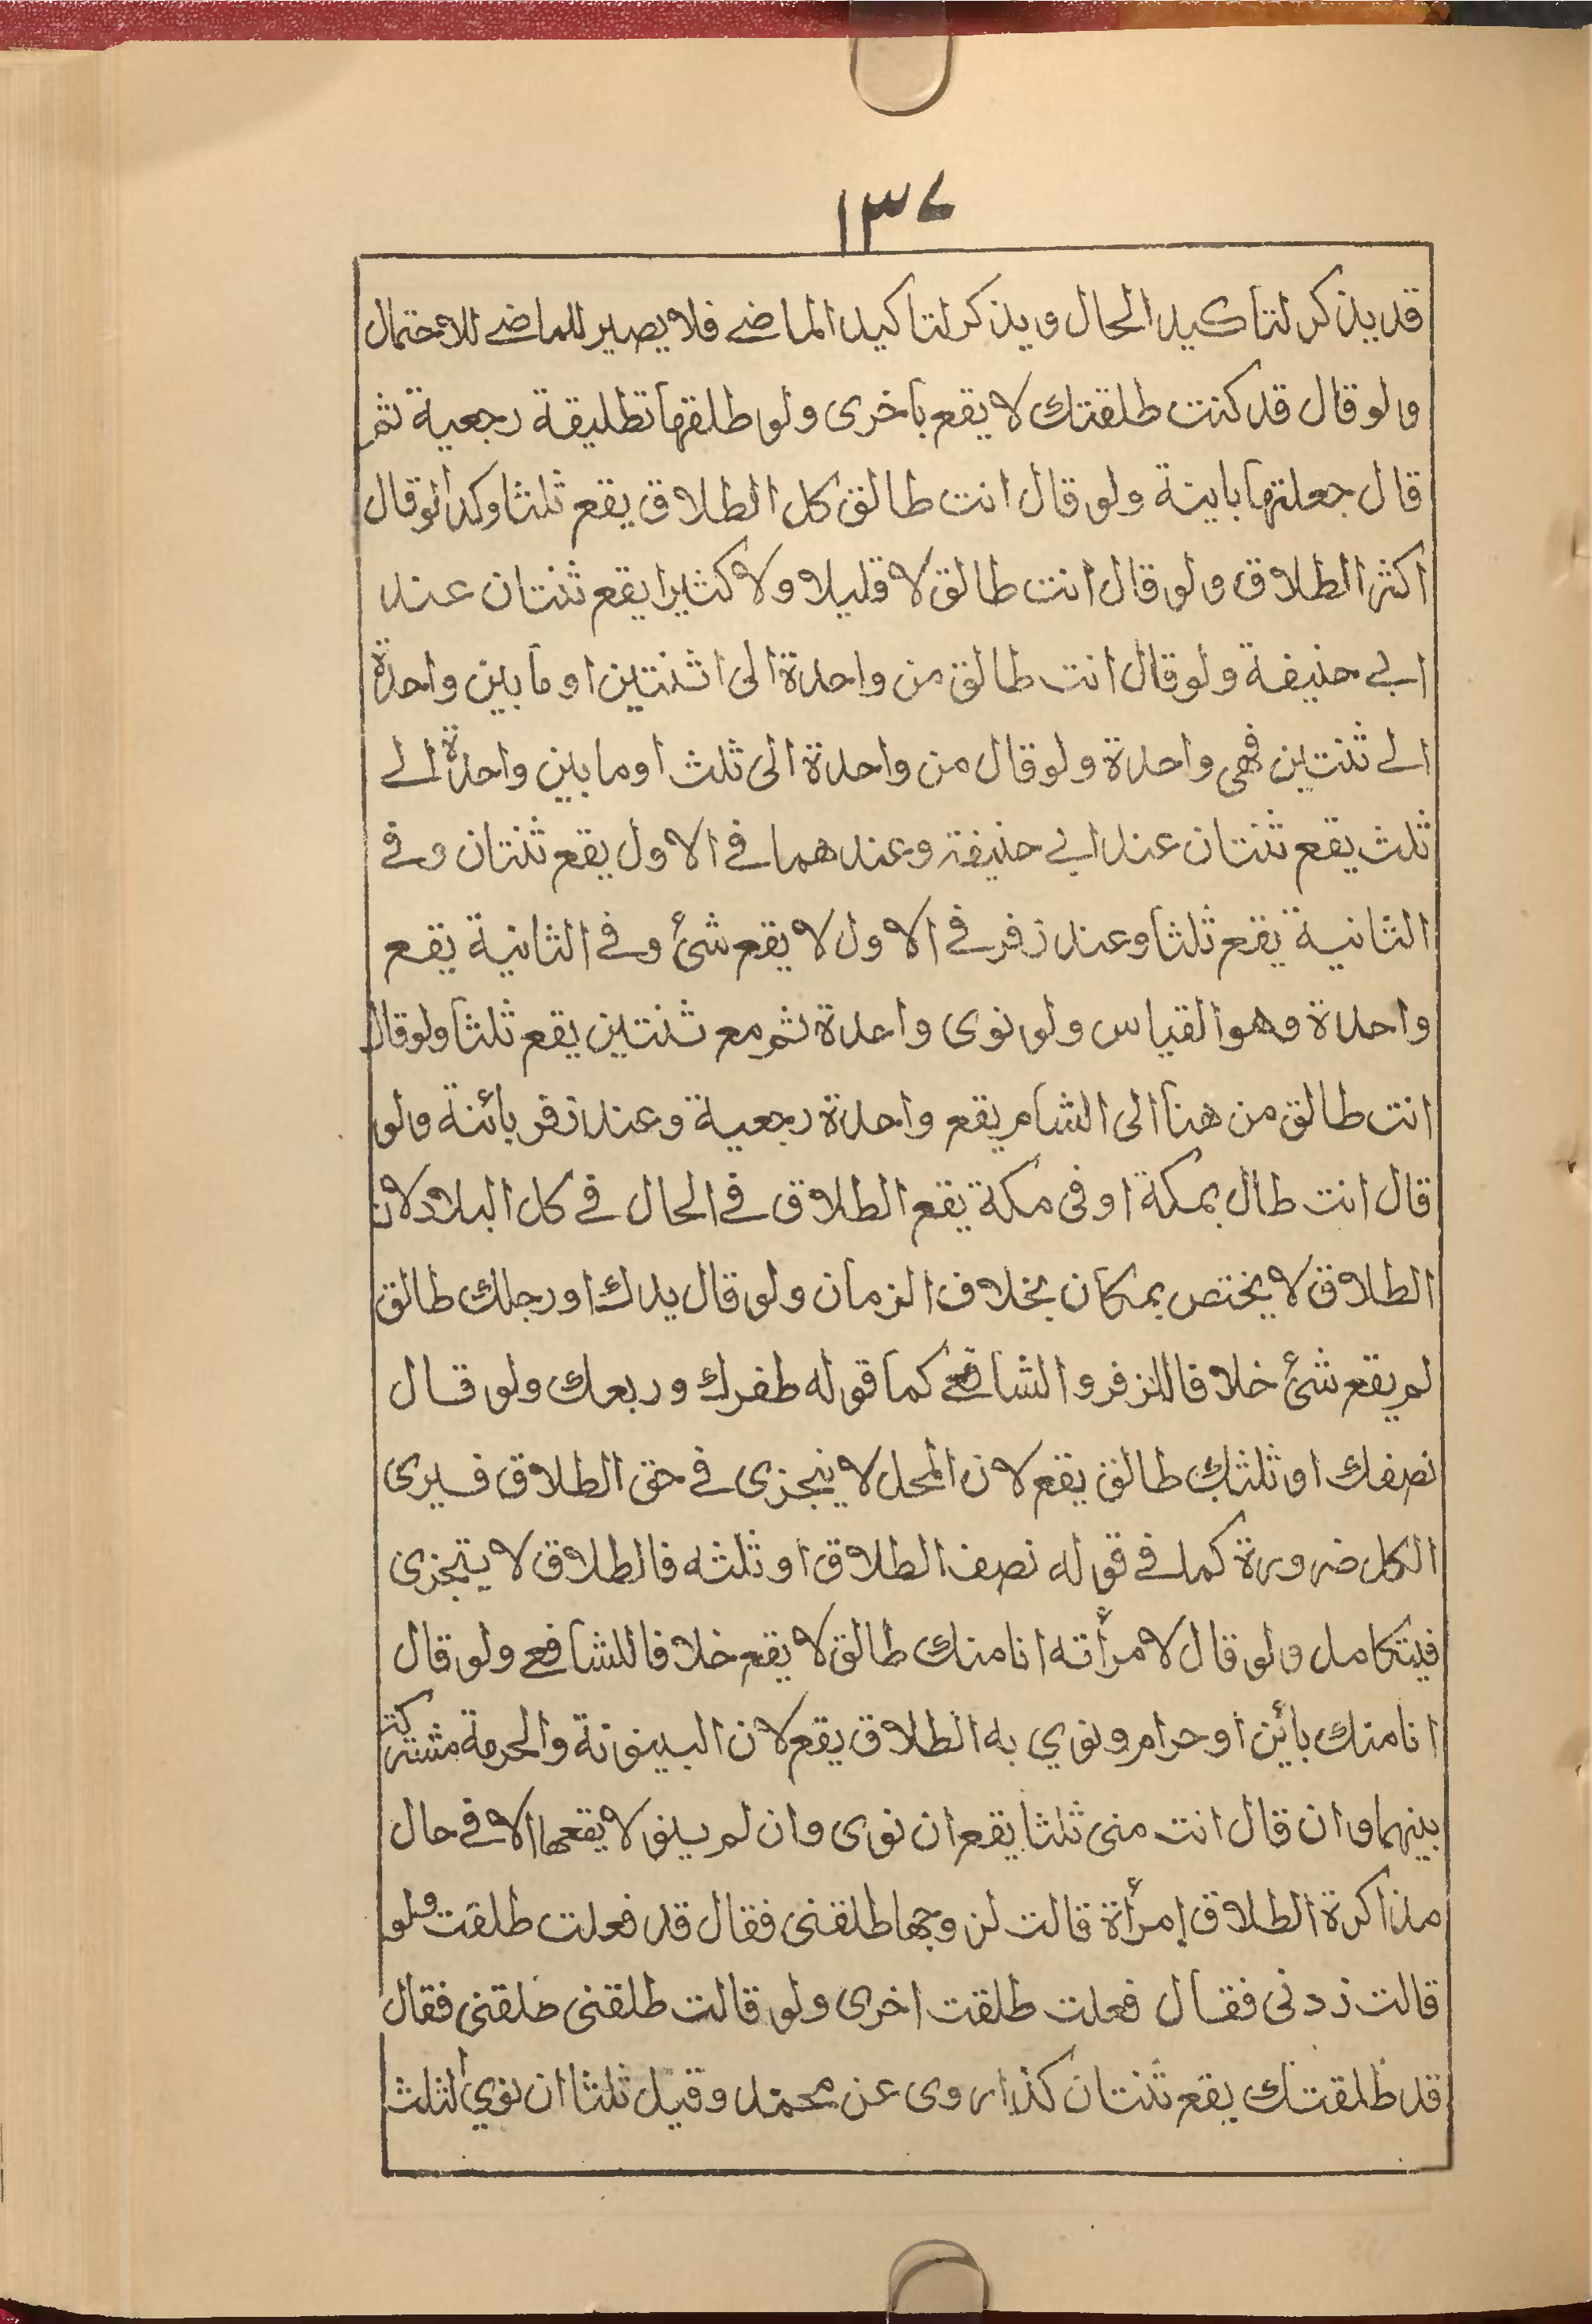 ١٣٧
قد يذكر لتاكيد الحال ويذكر لتاكيد الماضے فلا يصير للماضے للاحتمال
ولو قال قد كنت طلقتك لا يقع باخرى ولو طلقها تطليقة رجعية ثم
قال جعلتها باينة ولو قال انت طالق كل الطلاق يقع ثلثا وكذا لو قال
اكثر الطلاق ولو قال انت طالق لا قليلا ولا كثيرا يقع ثنتان عند
ابے حنيفة ولو قال انت طالق من واحدة الى اثنتين او ما بين واحدة
الے ثنتين فهى واحدة ولو قال من واحدة الى ثلث او ما بين واحدة الے
ثلث يقع ثنتان عند ابے حنيفة وعندهما فے الاول يقع ثنتان وفے
الثانية يقع ثلثا وعند زفر فے الاول لا يقع شئ وفے الثانية يقع
واحدة وهو القياس ولو نوى واحدة ثم مع ثنتين يقع ثلثا ولو قال
انت طالق من هنا الى الشام يقع واحدة رجعية وعند زفر بائنة ولو
قال انت طال بمكة او فى مكة يقع الطلاق فے الحال فے كل البلاد لان
الطلاق لا يختص بمكان بخلاف الزمان ولو قال يدك او رجلك طالق
لم يقع شئ خلافا لزفر والشافعے كما قوله ظفرك وربعك ولو قال
نصفك او ثلثك طالق يقع لان المحل لا يتجزى فے حق الطلاق فيسرى
الكل ضرورة كما فے قوله نصف الطلاق او ثلثه فالطلاق لا يتجزى
فيتكامل ولو قال لامرأته انا منك طالق لا يقع خلافا للشافعے ولو قال
انا منك بائن او حرام ونوي به الطلاق يقع لان البينونة والحرمة مشتركة
بينهما وان قال انت منى ثلثا يقع ان نوى وان لم ينو لا يقعها الا فے حال
مذاكرة الطلاق إمرأة قالت لزوجها طلقنى فقال قد فعلت طلقت ولو
قالت زدنى فقال فعلت طلقت اخرى ولو قالت طلقنى طلقنى فقال
قد طلقتك يقع ثنتان كذا روى عن محمد وقيل ثلثا ان نوي الثلث